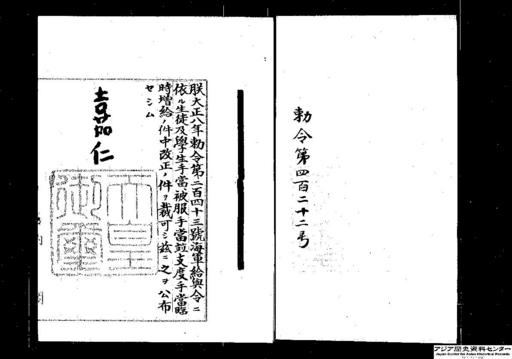 勅令第四百二十二号
朕大正八年勅令第二百四十三號海軍給與令ニ
依ル生徒及學生手當被服手當竝支度手當臨
時増給ノ件中改正ノ件ヲ裁可シ茲ニ之ヲ公布
セシム
嘉仁
天皇
御璽
アジア歴史資料センター
Japan Center for Asian Historical Records